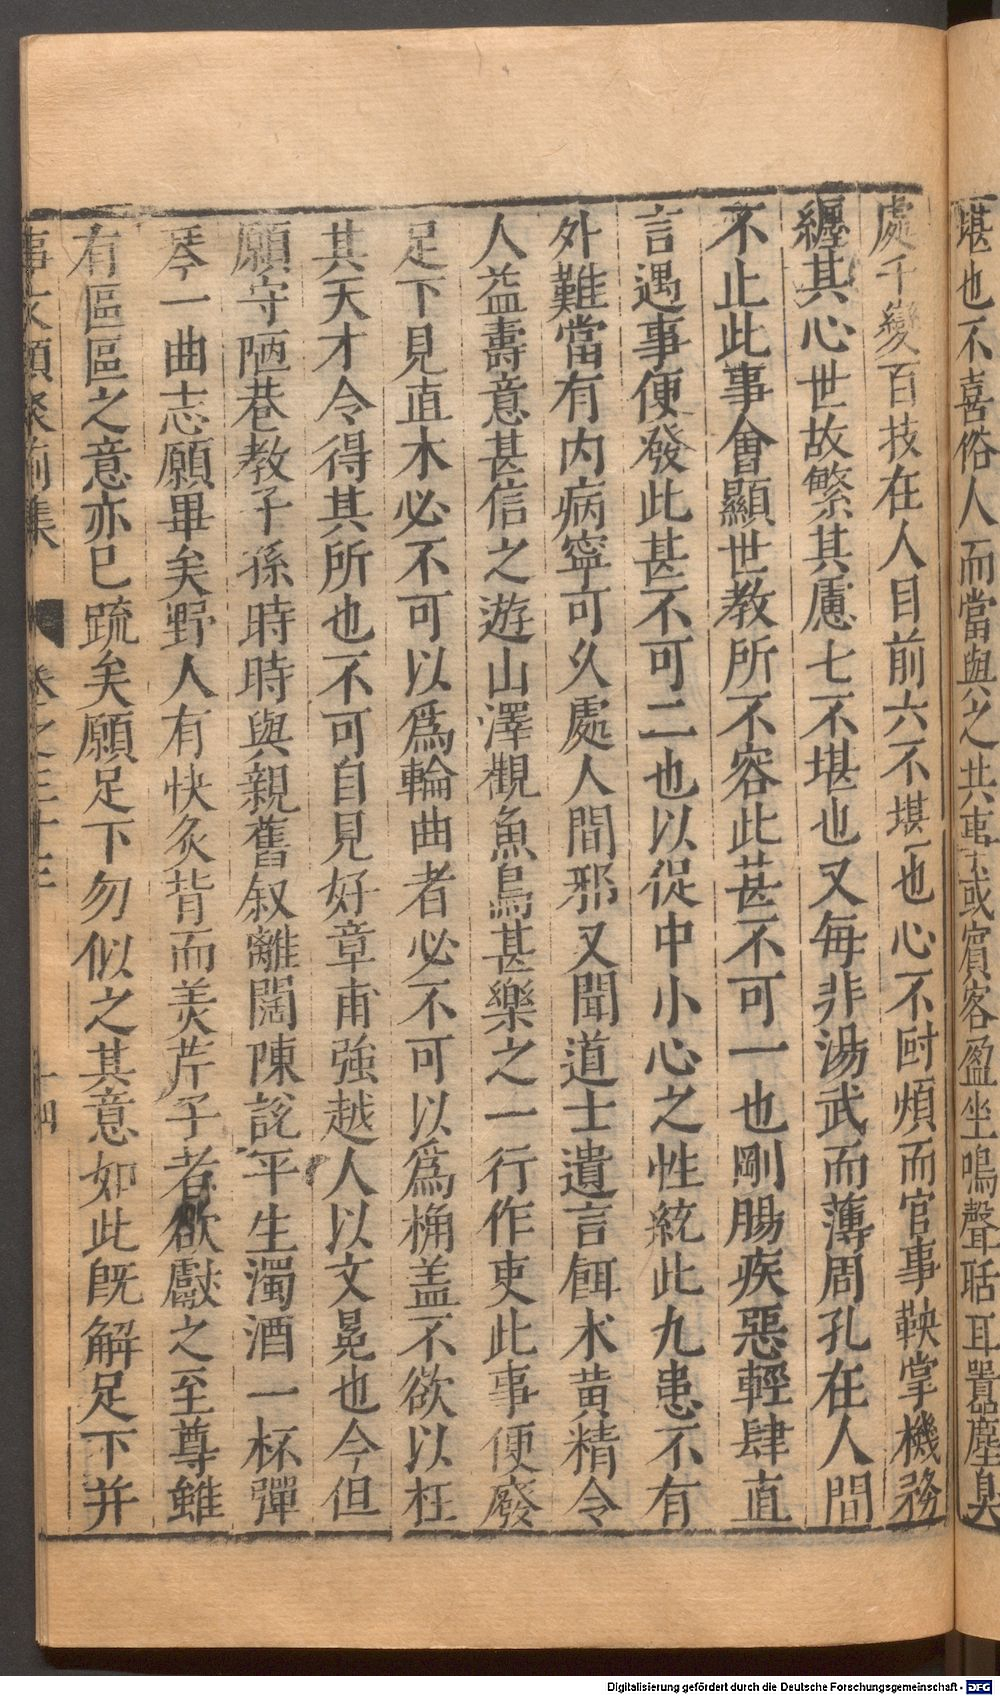 堪也不喜俗人而當與之共事或賓客盈坐鳴聲聒耳囂塵臭
處千變百技在人目前六不堪也心不耐煩而官事鞅掌機務
纏其心世故繁其慮七不堪也又每非湯武而薄周孔在人間
不止此事會顯世教所不容此甚不可一也剛腸疾惡輕肆直
言遇事便發此甚不可二也以促中小心之性統此九患不有
外難當有内病寧可久處人間邪又聞道士遺言餌朮黄精令
人益壽意甚信之遊山澤觀魚鳥甚樂之一行作吏此事便廢
足下見直木必不可以爲輪曲者必不可以爲桷盖不欲以枉
其天才令得其所也不可自見好章甫強越人以文冕也今但
願守陋巷教子孫時時與親舊叙離闊陳說平生濁酒一杯彈
琴一曲志願畢矣野人有快炙背而美芹子者欲獻之至尊雖
有區區之意亦已疏矣願足下勿似之其意如此旣解足下并
事文類聚前集 卷之三十三 十四
Digitalisierung gefördert durch die Deutsche Forschungsgemeinschaft - DFG